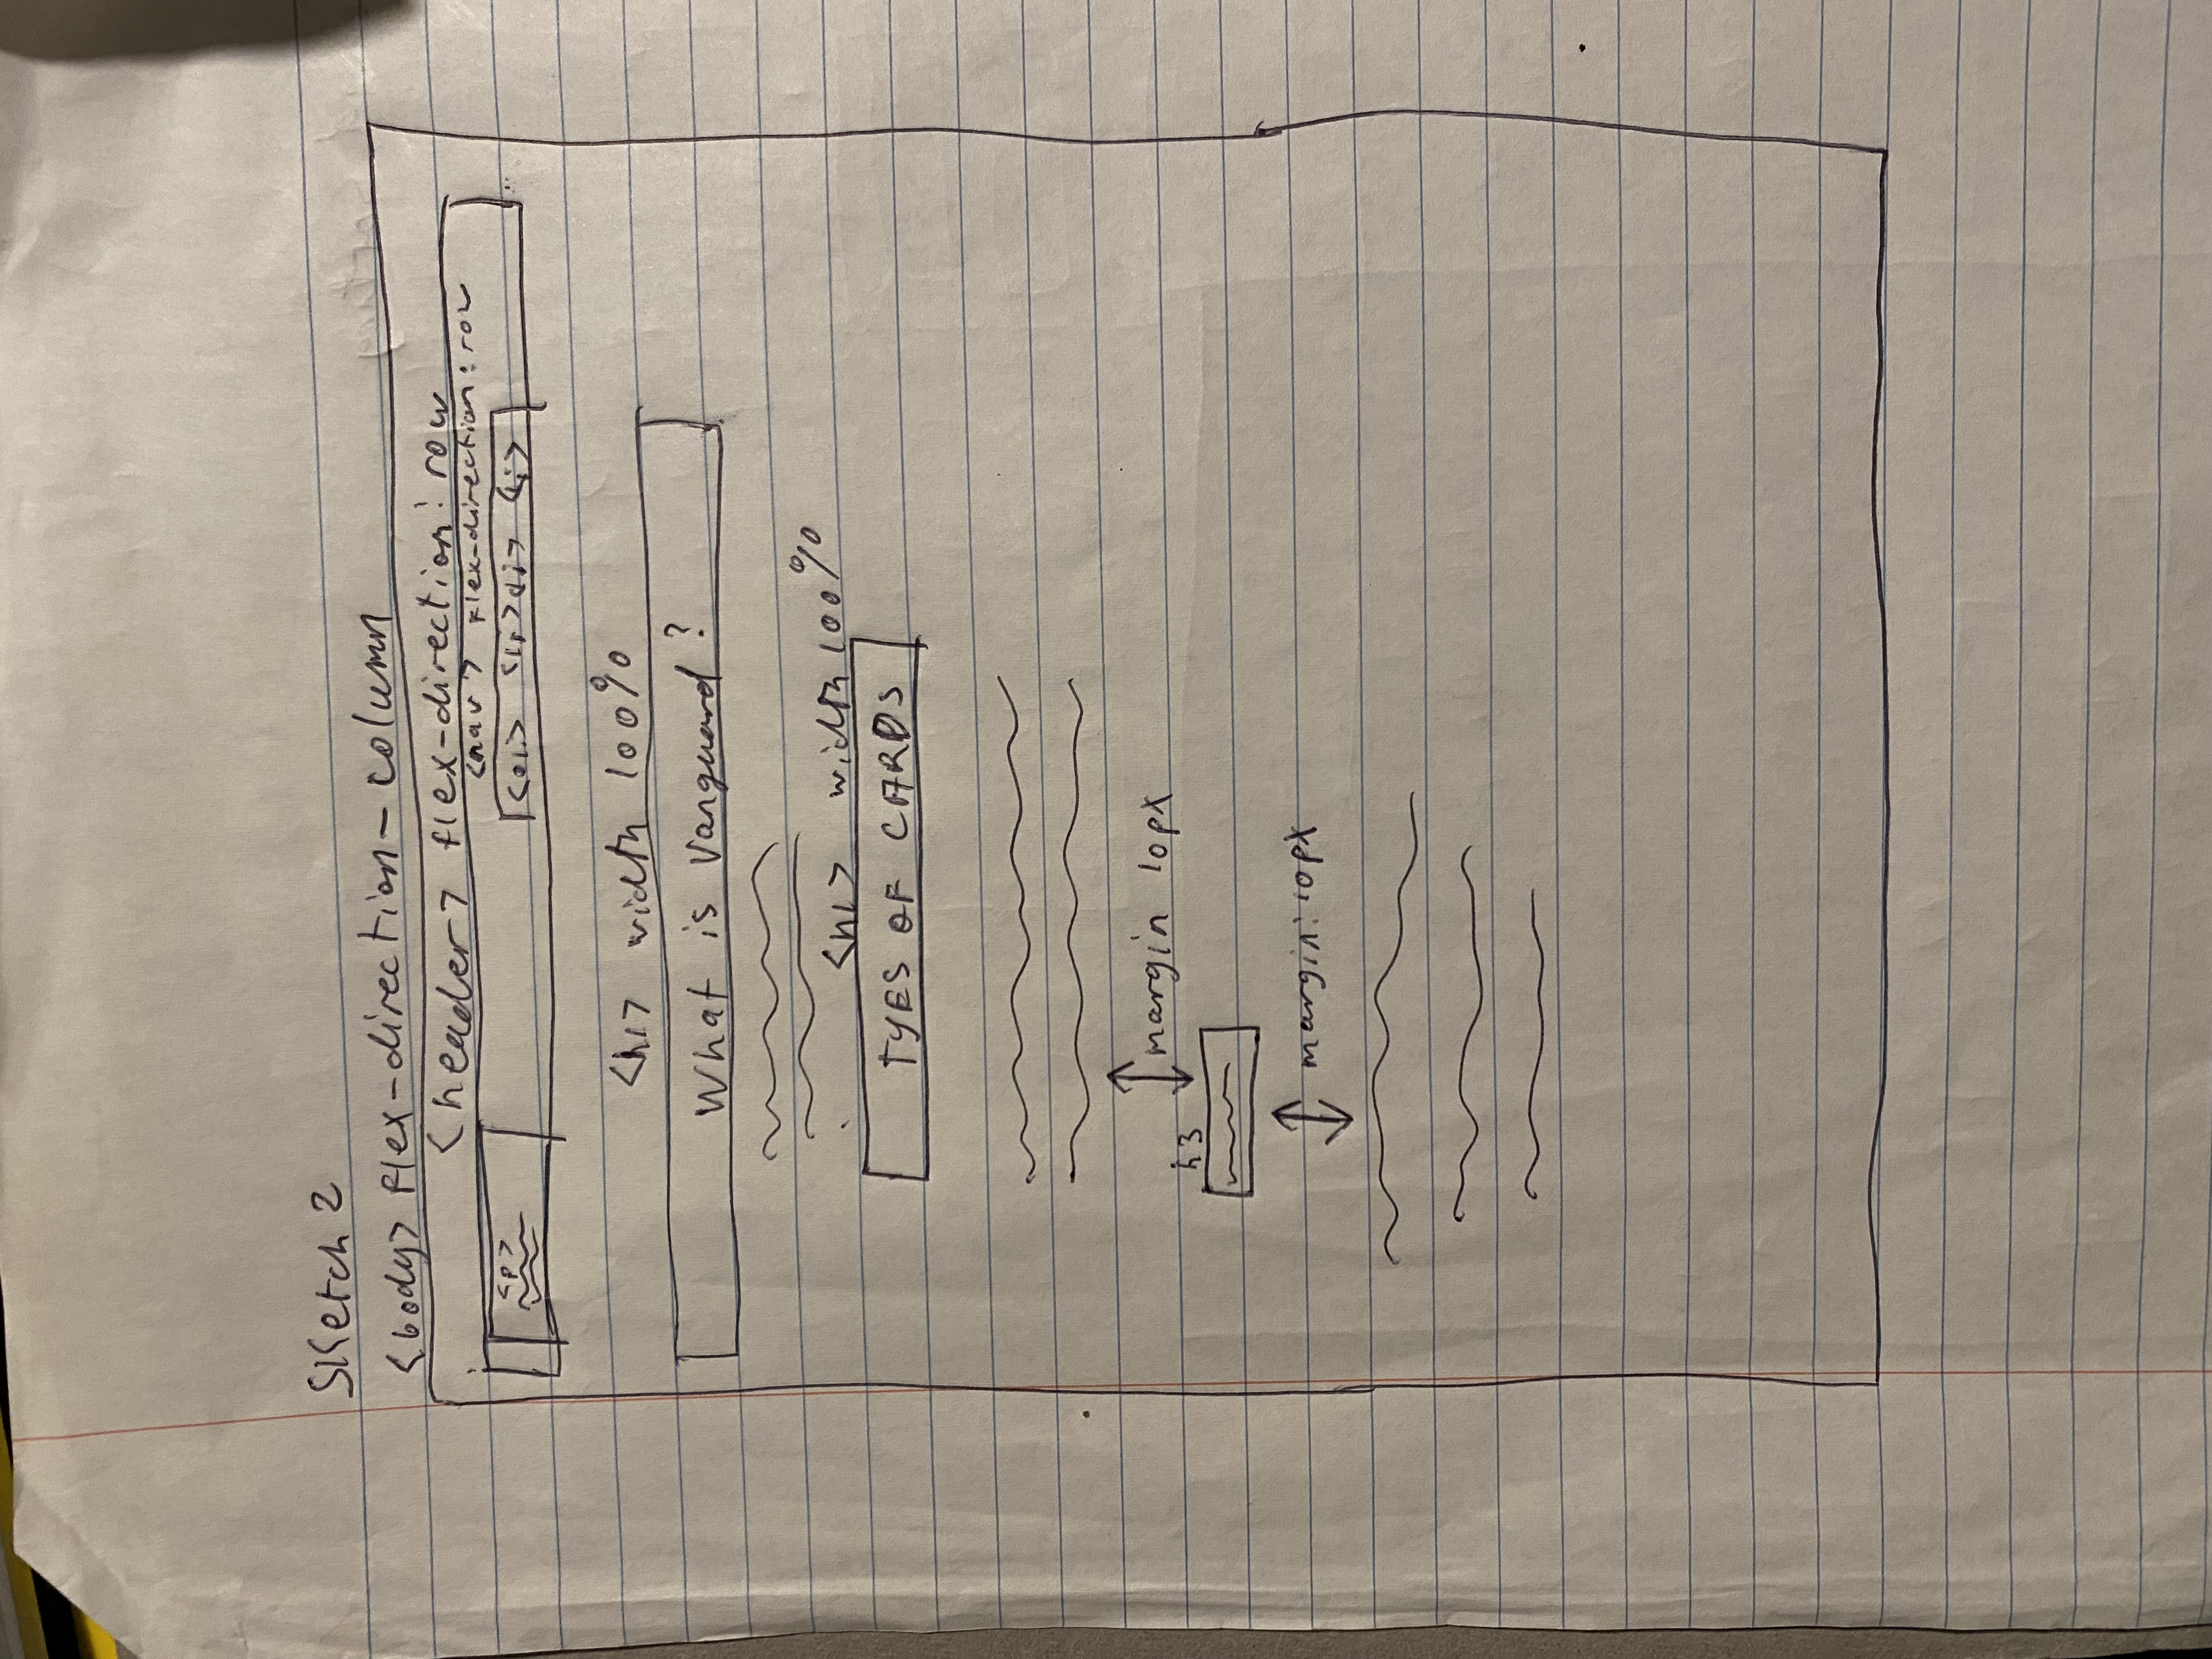 Sketch 2
<body> flex-direction-column
<header> flex-direction: row
<nav> flex-direction: row
<p>
<li> <li> <li>
<h1> width 100%
What is Vanguard?
<h1> width 100%
TYES OF CARDS
margin 10px
h3
margin: 10px